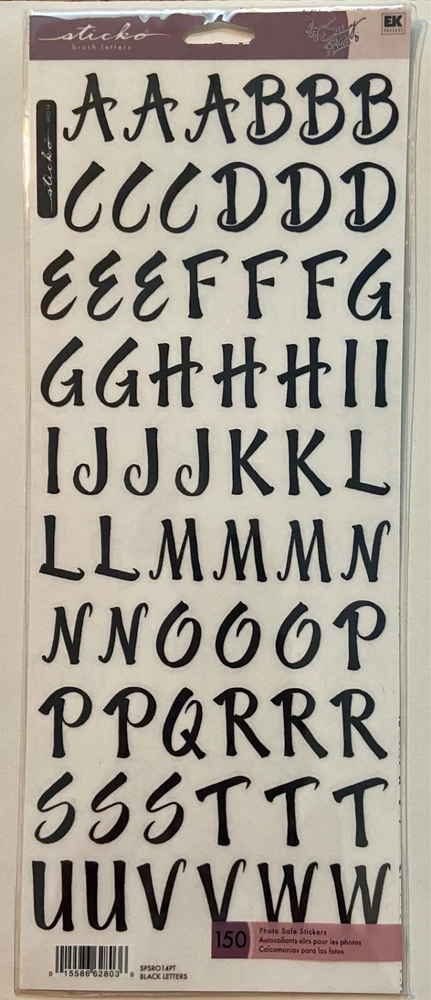 sticko
brush letters
EK
SUCCESS
sticko
AAABBB
CCCDDD
EEEFFFG
GGHHHII
IJJJKKL
LLMMMN
NNOOOP
PPQRRR
SSSTTT
UUVVWW
150
Photo Safe Stickers
Autocollants sûrs pour les photos
Calcomanías para las fotos
0 15586 62803 6
SPSRO14PT
BLACK LETTERS